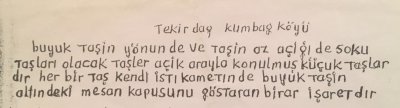 Tekirdaġ kumbaġ köyü
buyuk Taşin yönunde ve Taşin az açiği de soku
Taşları olacak Taşler açik arayla konulmuş küçük Taşlar
dır her bir Taş kendi isti kametinde buyük Taşin
altındeki mesan kapusunu göstaran birar işaretdir